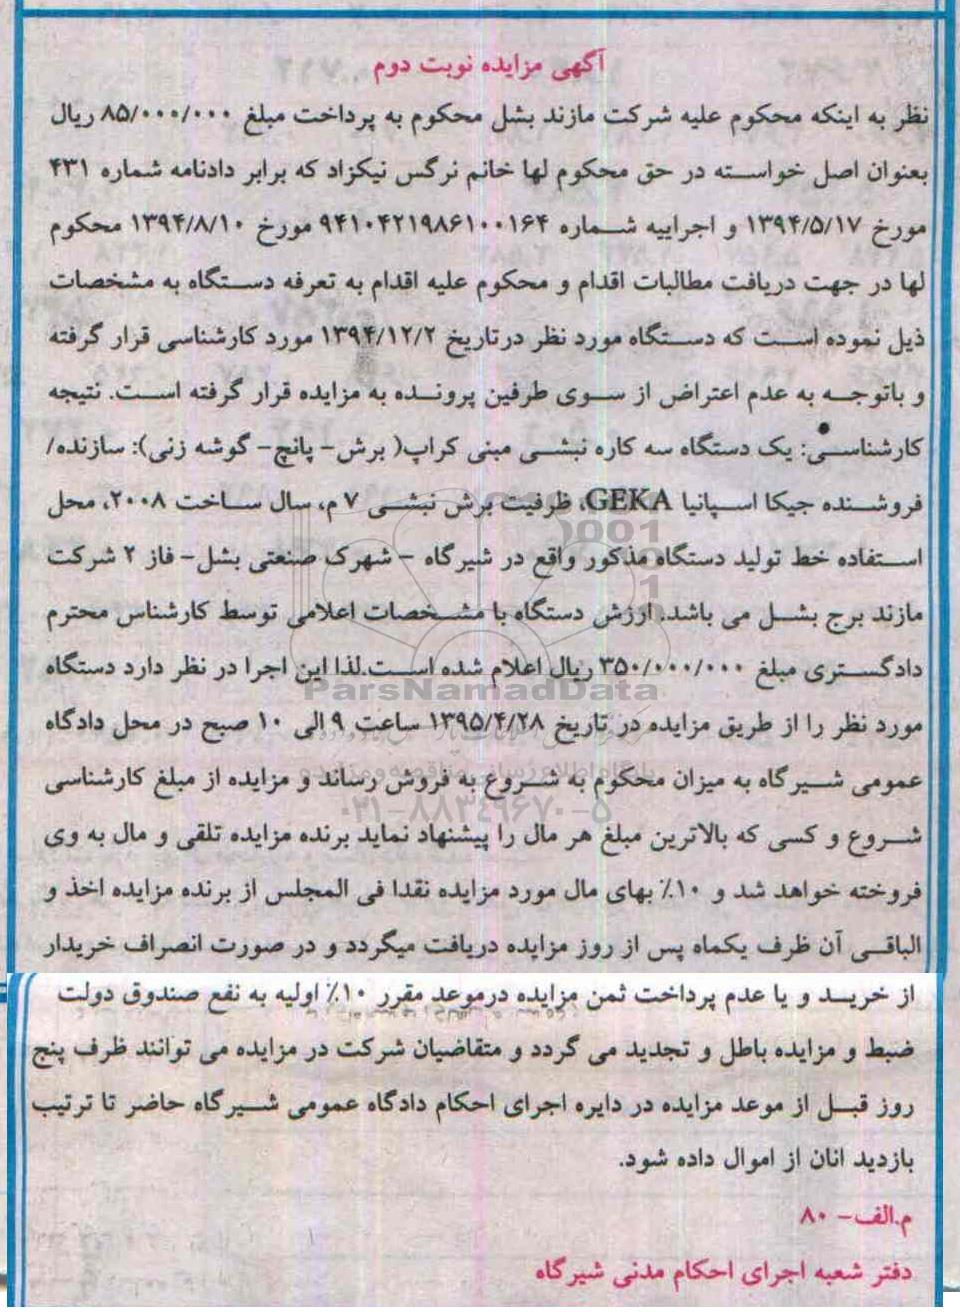 آگهی مزایده نوبت دوم
نظر به اینکه محکوم علیه شرکت مازند بشل محکوم به پرداخت مبلغ ۸۵/۰۰۰/۰۰۰ ریال
بعنوان اصل خواسته در حق محکوم لها خانم نرگس نیکزاد که برابر دادنامه شماره ۴۳۱
مورخ ۱۳۹۴/۵/۱۷ و اجراییه شماره ۹۴۱۰۴۲۱۹۸۶۱۰۰۱۶۴ مورخ ۱۳۹۴/۸/۱۰ محکوم
لها در جهت دریافت مطالبات اقدام و محکوم علیه اقدام به تعرفه دستگاه به مشخصات
ذیل نموده است که دستگاه مورد نظر درتاریخ ۱۳۹۴/۱۲/۲ مورد کارشناسی قرار گرفته
و باتوجه به عدم اعتراض از سوی طرفین پرونده به مزایده قرار گرفته است. نتیجه
کارشناسی: یک دستگاه سه کاره نبشی مبنی کراپ( برش- پانچ- گوشه زنی): سازنده/
فروشنده جیکا اسپانیا GEKA، ظرفیت برش نبشی ۷ م، سال ساخت ۲۰۰۸، محل
استفاده خط تولید دستگاه مذکور واقع در شیرگاه - شهرک صنعتی بشل- فاز ۲ شرکت
مازند برج بشل می باشد. ارزش دستگاه با مشخصات اعلامی توسط کارشناس محترم
دادگستری مبلغ ۳۵۰/۰۰۰/۰۰۰ ریال اعلام شده است.لذا این اجرا در نظر دارد دستگاه
ParsNamadData
مورد نظر را از طریق مزایده در تاریخ ۱۳۹۵/۴/۲۸ ساعت ۹ الی ۱۰ صبح در محل دادگاه
عمومی شیرگاه به میزان محکوم به شروع به فروش رساند و مزایده از مبلغ کارشناسی
۰۲۱-۸۸۳۴۹۶۷۰-۵
شروع و کسی که بالاترین مبلغ هر مال را پیشنهاد نماید برنده مزایده تلقی و مال به وی
فروخته خواهد شد و ۱۰٪ بهای مال مورد مزایده نقدا فی المجلس از برنده مزایده اخذ و
الباقی آن ظرف یکماه پس از روز مزایده دریافت میگردد و در صورت انصراف خریدار
از خرید و یا عدم پرداخت ثمن مزایده درموعد مقرر ۱۰٪ اولیه به نفع صندوق دولت
ضبط و مزایده باطل و تجدید می گردد و متقاضیان شرکت در مزایده می توانند ظرف پنج
روز قبل از موعد مزایده در دایره اجرای احکام دادگاه عمومی شیرگاه حاضر تا ترتیب
بازدید انان از اموال داده شود.
م.الف- ۸۰
دفتر شعبه اجرای احکام مدنی شیرگاه